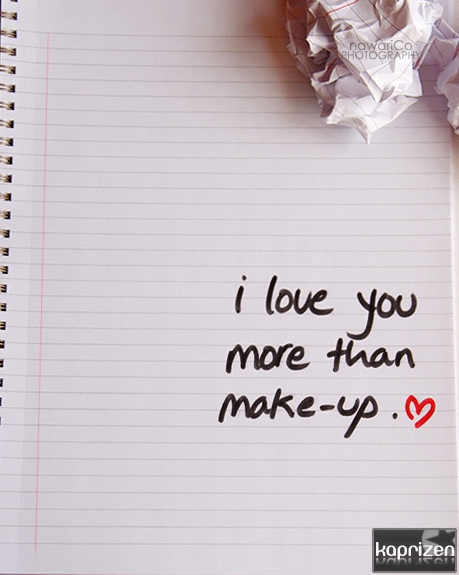 nawariCo
PHOTOGRAPHY
i love you
more than
make-up.
kaprizen